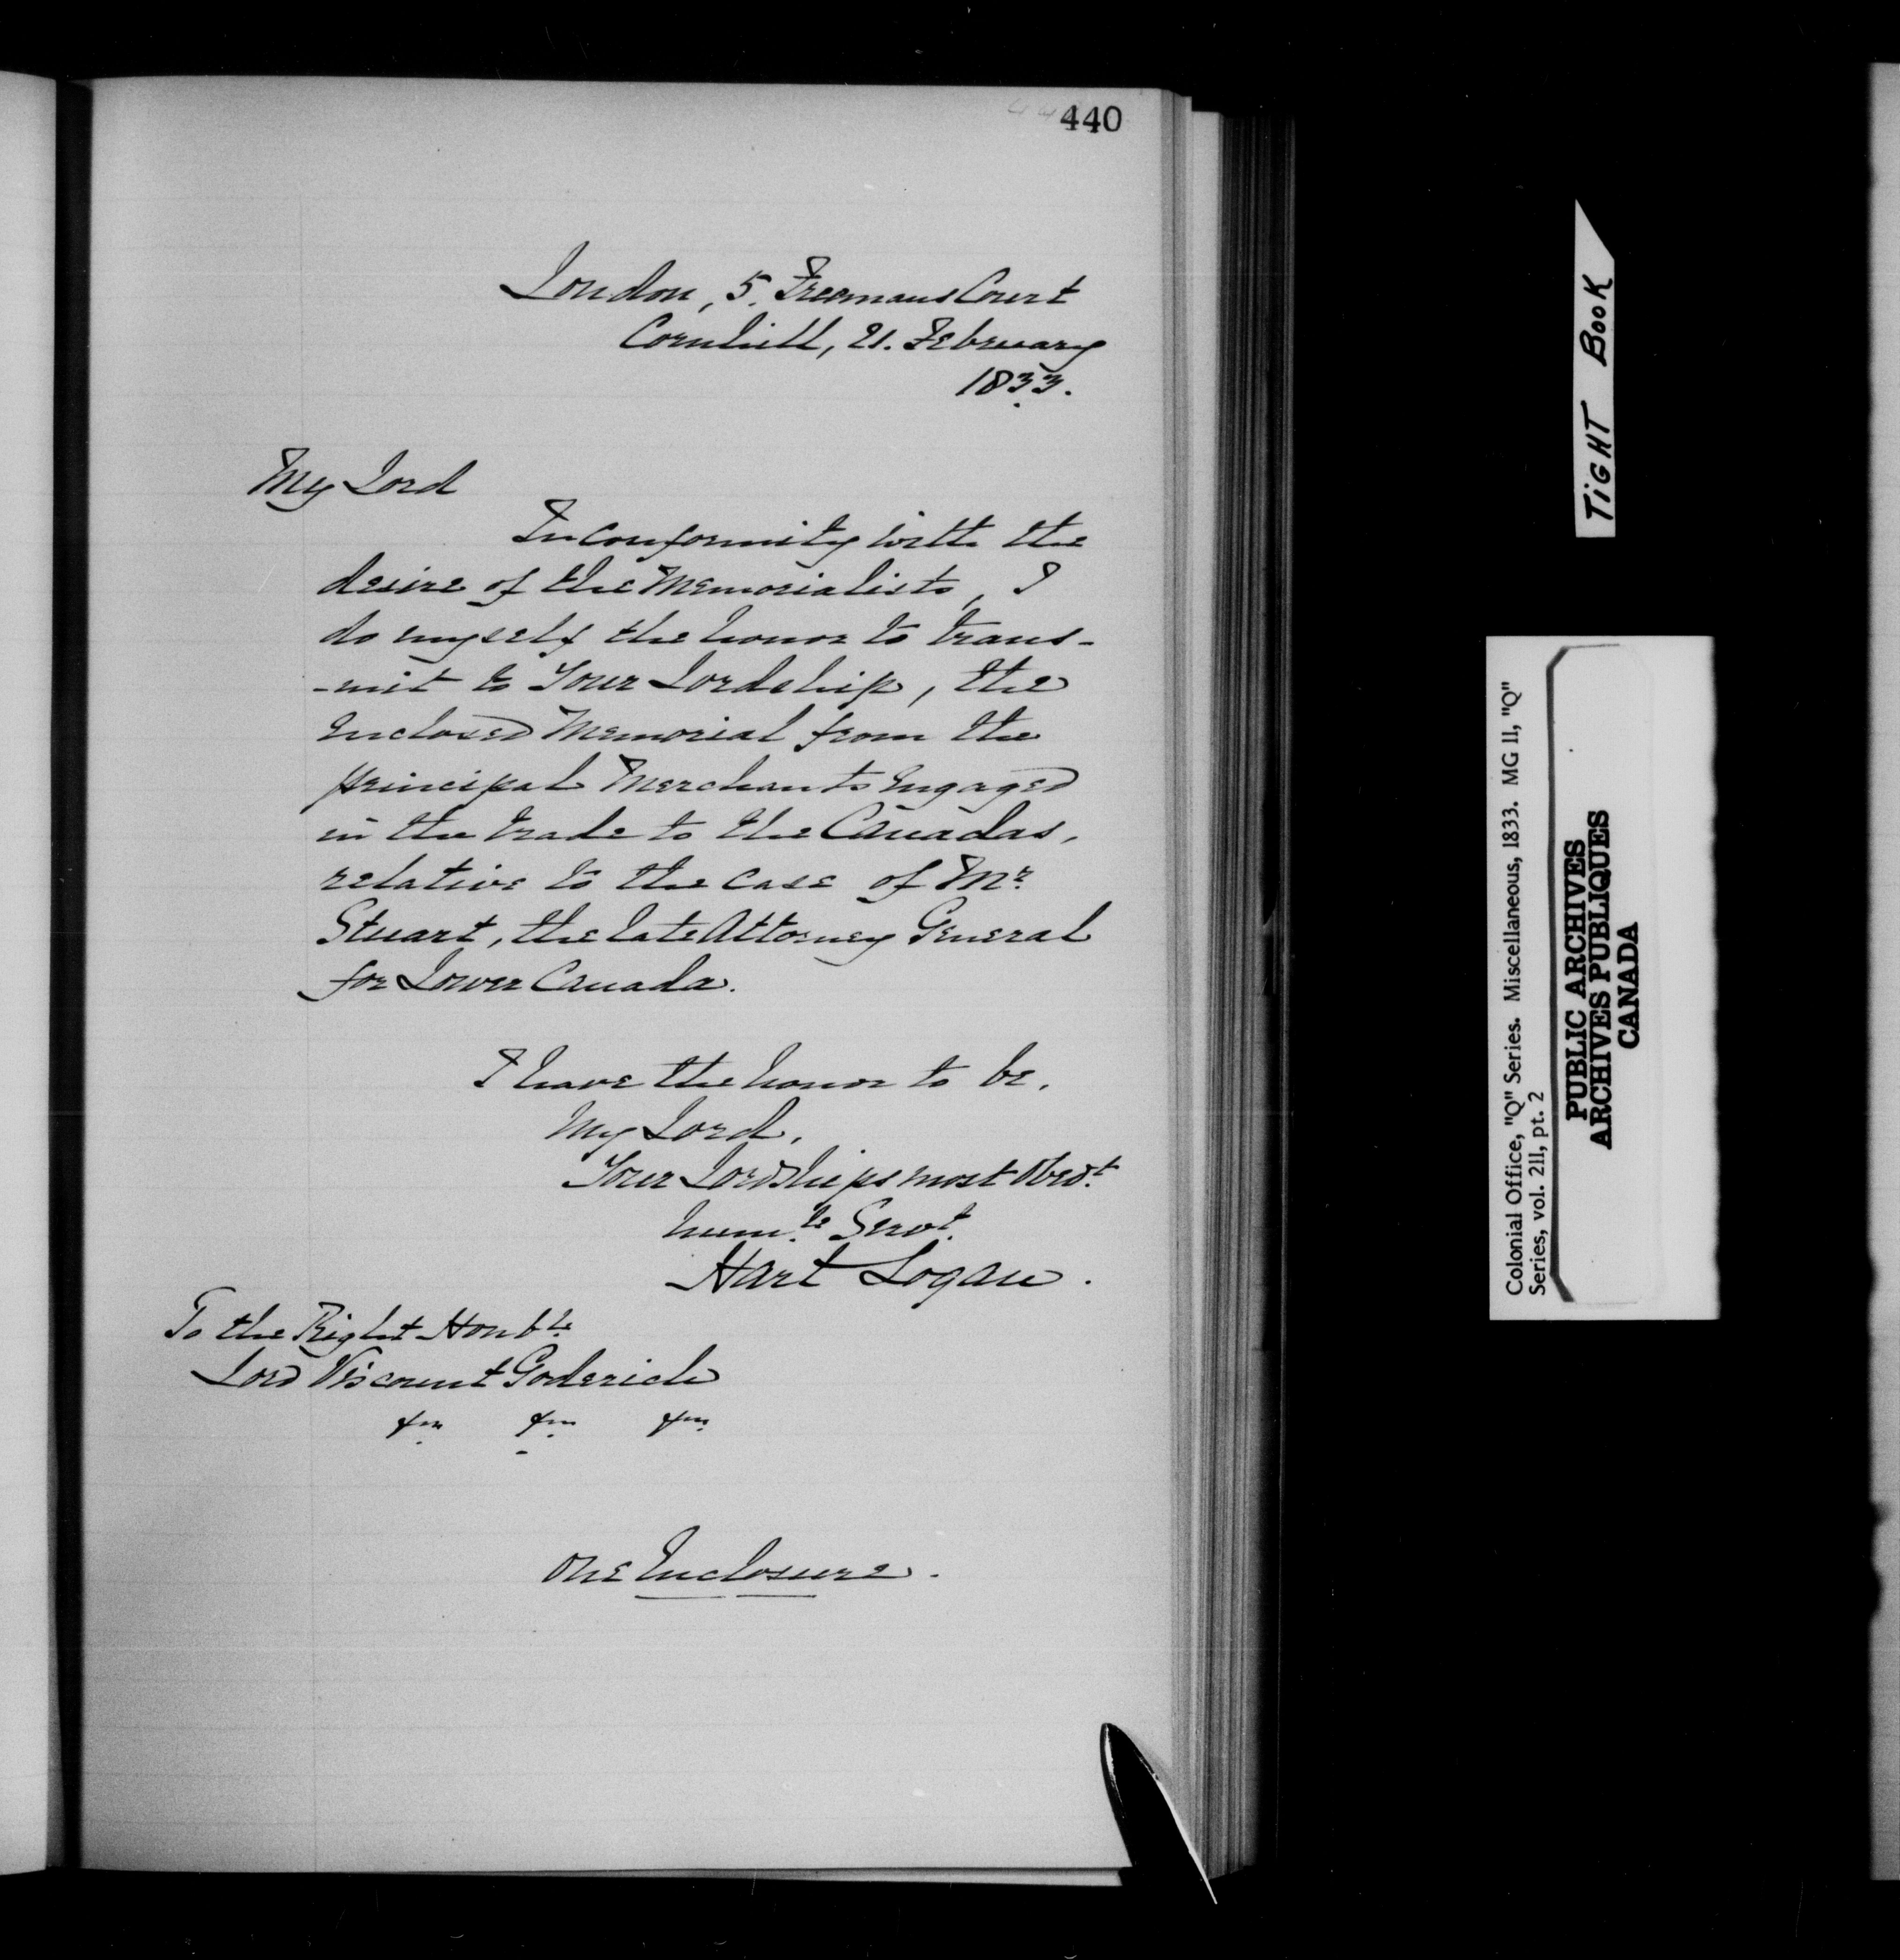 440
London, 5. Freemans Court
Cornhill, 21. February
1833.
My Lord
In conformity with the
desire of the Memorialists, I
do myself the honor to trans-
-mit to Your Lordship, the
Enclosed Memorial from the
principal Merchants Engaged
in the trade to the Canadas,
relative to the case of Mr.
Stuart, the late Attorney General
for Lower Canada.
I have the honor to be,
My Lord,
Your Lordships most Obedt.
humble Servt.
Hart Logan.
To the Right Honble.
Lord Viscount Goderich
One Enclosure.
TIGHT BOOK
Colonial Office, "Q" Series. Miscellaneous, 1833. MG 11, "Q"
Series, vol. 211, pt. 2
PUBLIC ARCHIVES
ARCHIVES PUBLIQUES
CANADA